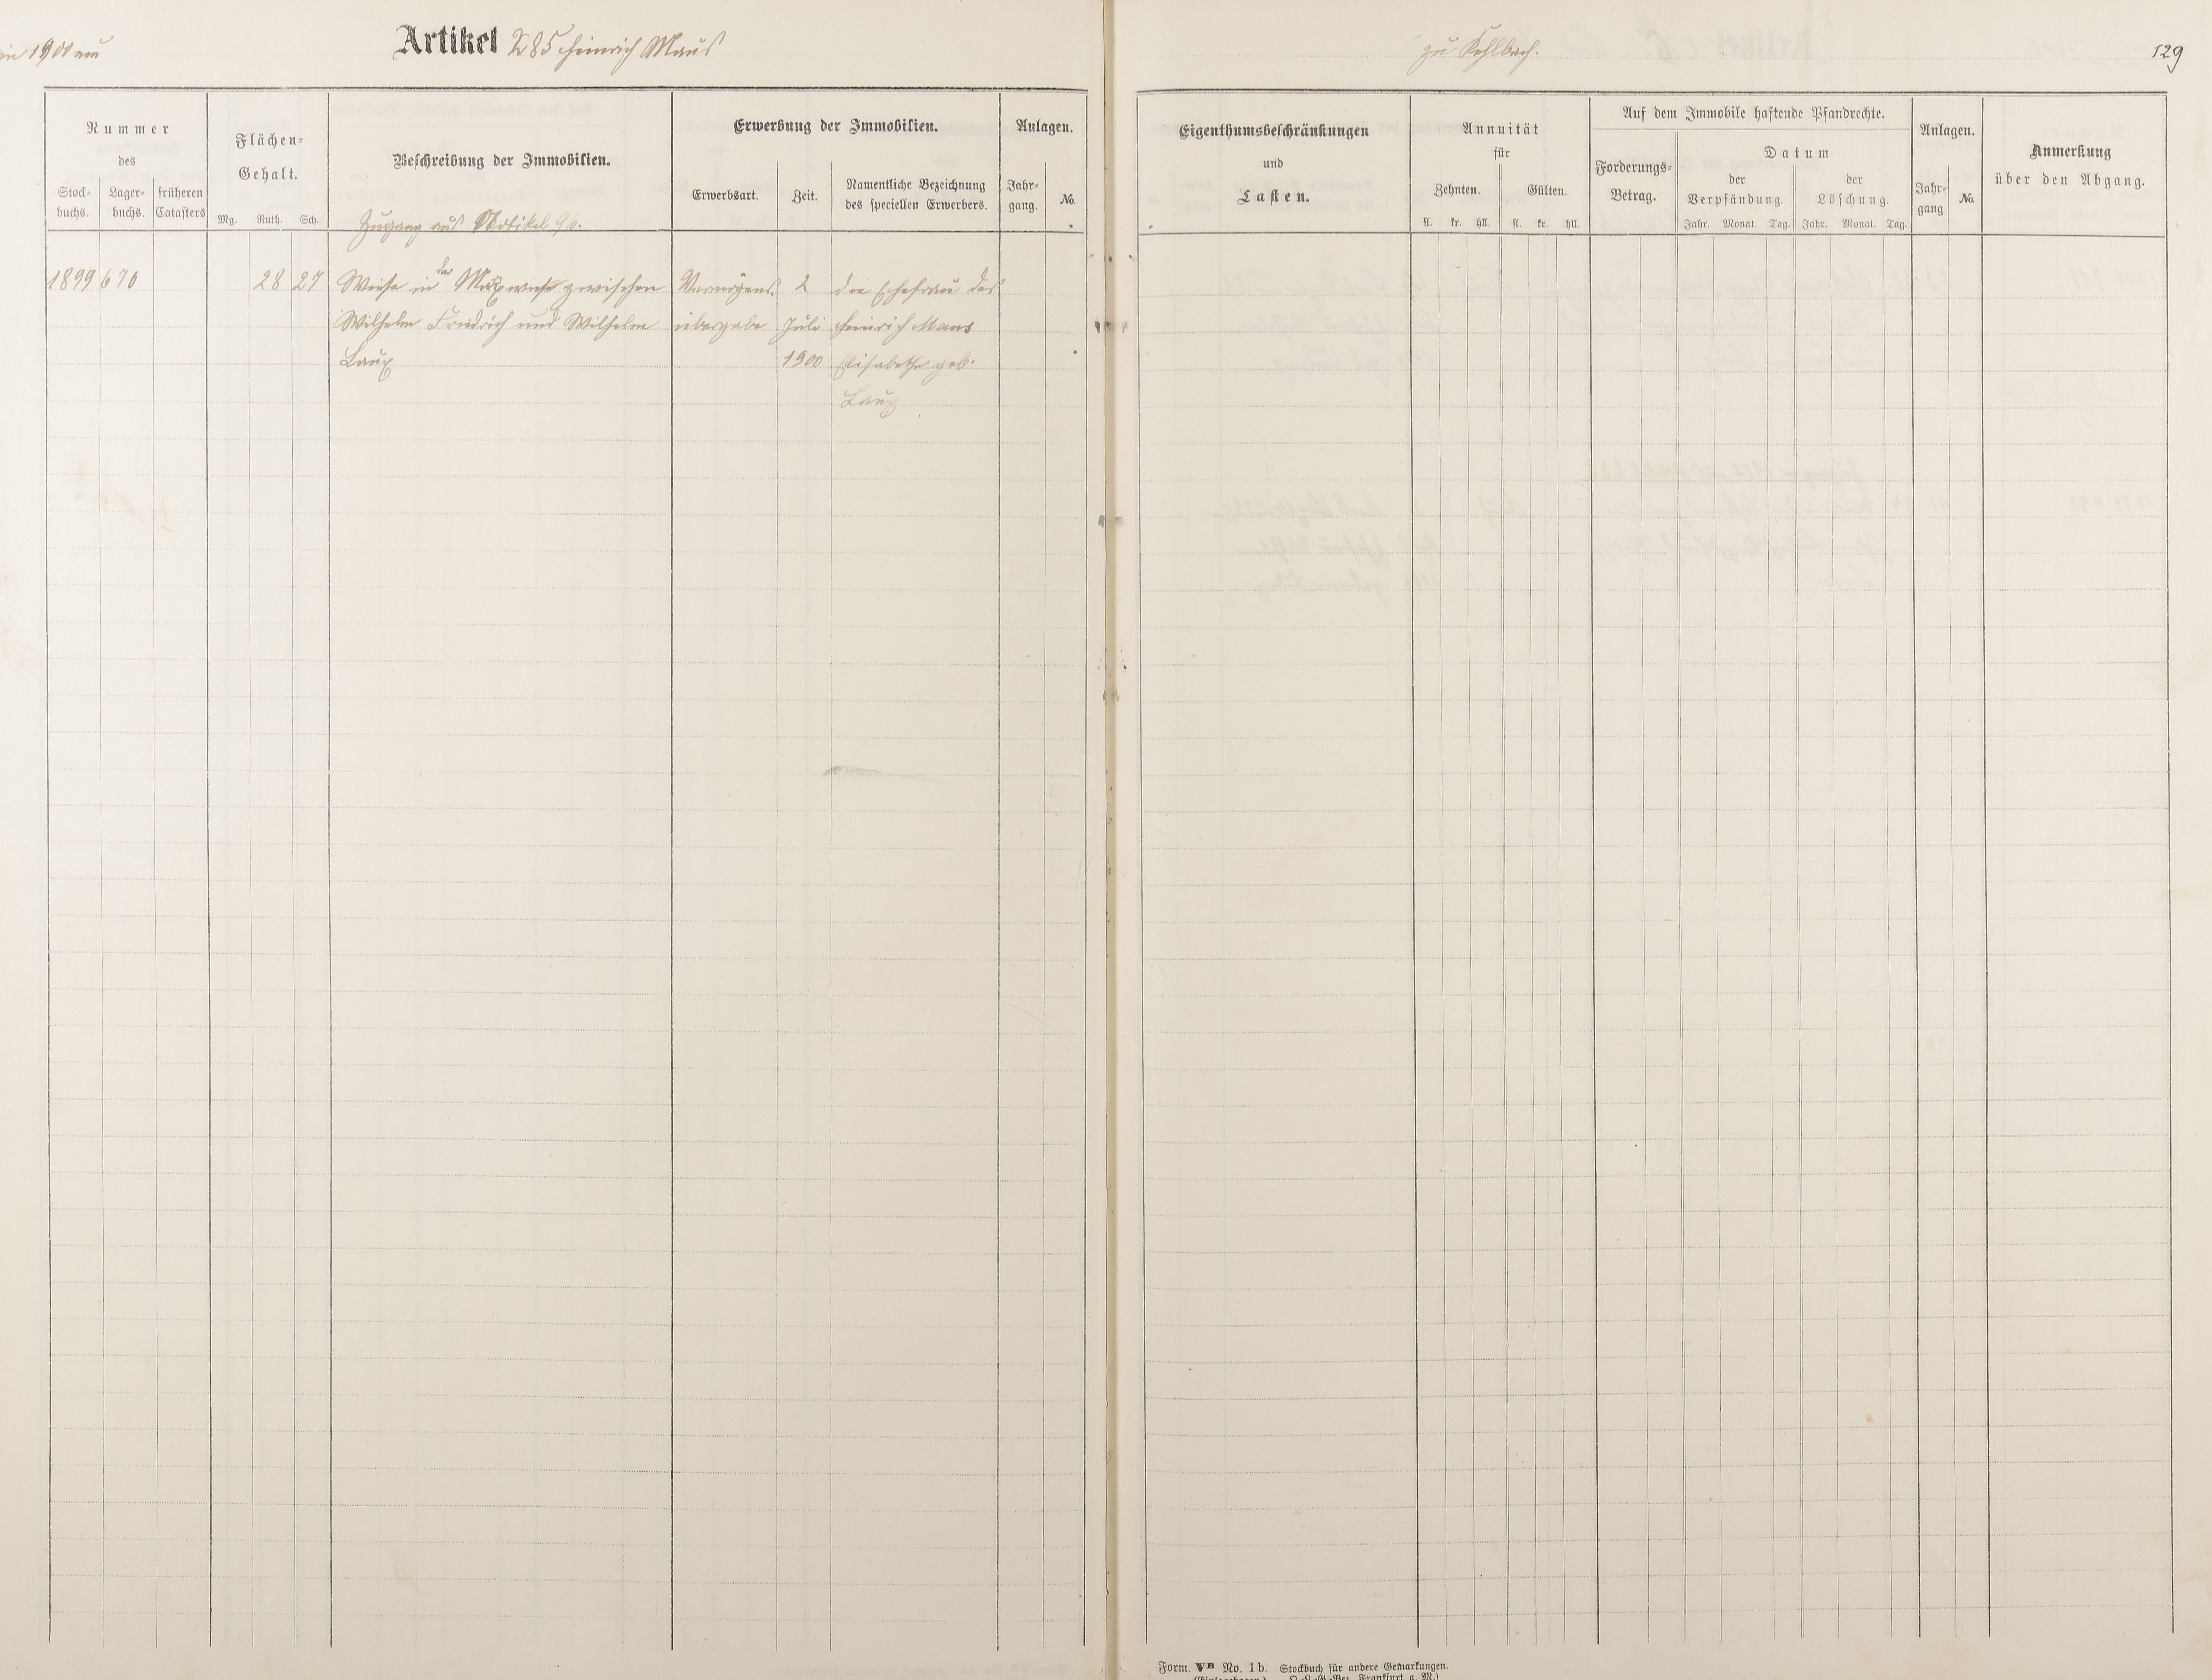 in 1901 neu
Artikel 285 Heinrich Maus
zu Kehlbach.
129
Nummer
des
Stock-
buchs.
Lager-
buchs.
früheren
Catasters
Flächen-
Gehalt.
Mg. Ruth. Sch.
Beschreibung der Immobilien.
Erwerbung der Immobilien.
Erwerbsart.
Zeit.
Namentliche Bezeichnung
des speciellen Erwerbers.
Anlagen.
Jahr-
gang.
No.
Eigenthumsbeschränkungen
und
Lasten.
Annuität
für
Zehnten.
Gülten.
fl. kr. hll. fl. kr. hll.
Auf dem Immobile haftende Pfandrechte.
Forderungs-
Betrag.
Datum
der
Verpfändung.
der
Löschung.
Jahr. Monat. Tag. Jahr. Monat. Tag.
Anlagen.
Jahr-
gang
No.
Anmerkung
über den Abgang.
Zugang aus Artikel 96.
1899 670 28 27 Wiese in der zwischen Vermögens 2 die Ehefrau des
Wilhelm Friedrich und Wilhelm übergabe Juli Heinrich Maus
Laux 1900 Elisabethe geb.
Laux
Form. VB No. 1b. Stockbuch für andere Gemarkungen.
(Einlagebogen.) Frankfurt a. M.)